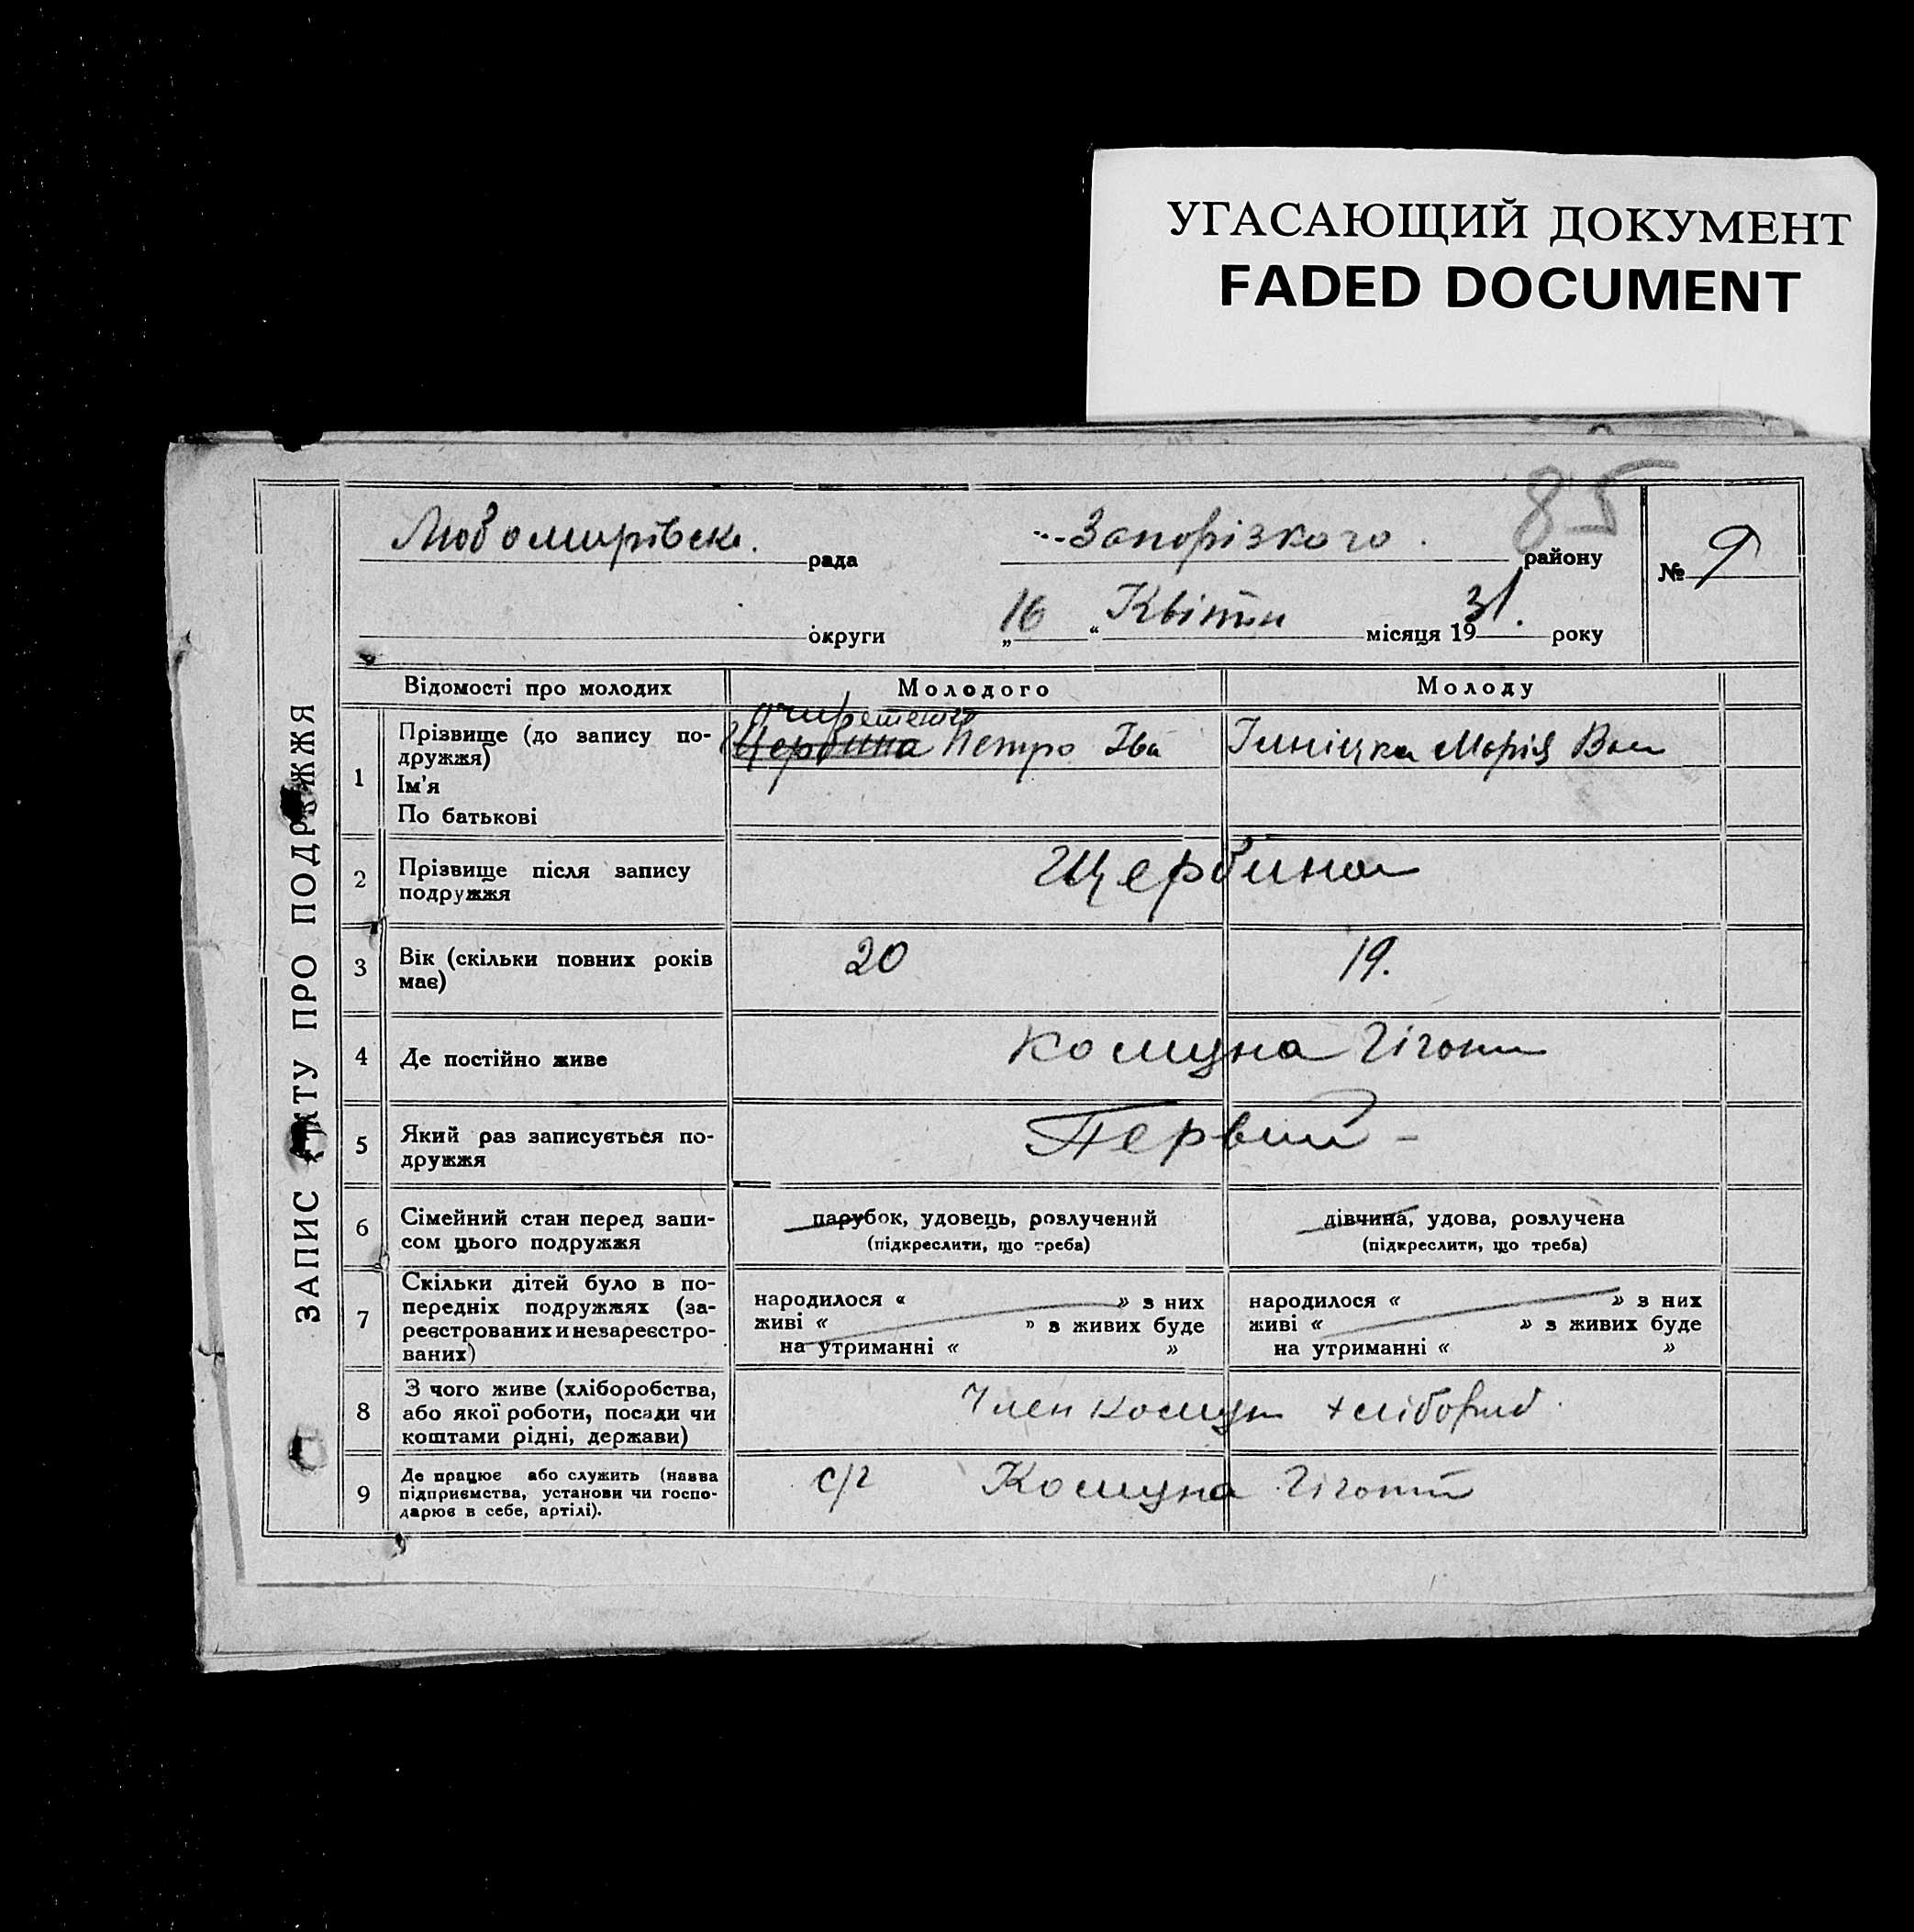 УГАСАЮЩИЙ ДОКУМЕНТ
FADED DOCUMENT
85
ЗАПИС АКТУ ПРО ПОДРУЖЖЯ
Любомирівск. рада Запорізкого району № 9
округи „16“ Квітня місяця 1931. року
Відомості про молодих Молодого Молоду
1 Прізвище (до запису по-
дружжя)
Ім'я
По батькові
Щербина Петро Іва
Марія
2 Прізвище після запису
подружжя
Щербина
3 Вік (скільки повних років
має)
20 19.
4 Де постійно живе
Комуна Гігант
5 Який раз записується по-
дружжя
Первий -
6 Сімейний стан перед запи-
сом цього подружжя
парубок, удовець, розлучений
(підкреслити, що треба)
дівчина, удова, розлучена
(підкреслити, що треба)
7 Скільки дітей було в по-
передніх подружжях (за-
реєстрованих и незареєстро-
ваних)
народилося « » з них
живі « » з живих буде
на утриманні « »
народилося « » з них
живі « » з живих буде
на утриманні « »
8 З чого живе (хліборобства,
або якої роботи, посади чи
коштами рідні, держави)
Член комун хлібороб
9 Де працює або служить (назва
підприємства, установи чи госпо-
дарює в себе, артілі).
с/г Комуна Гігант